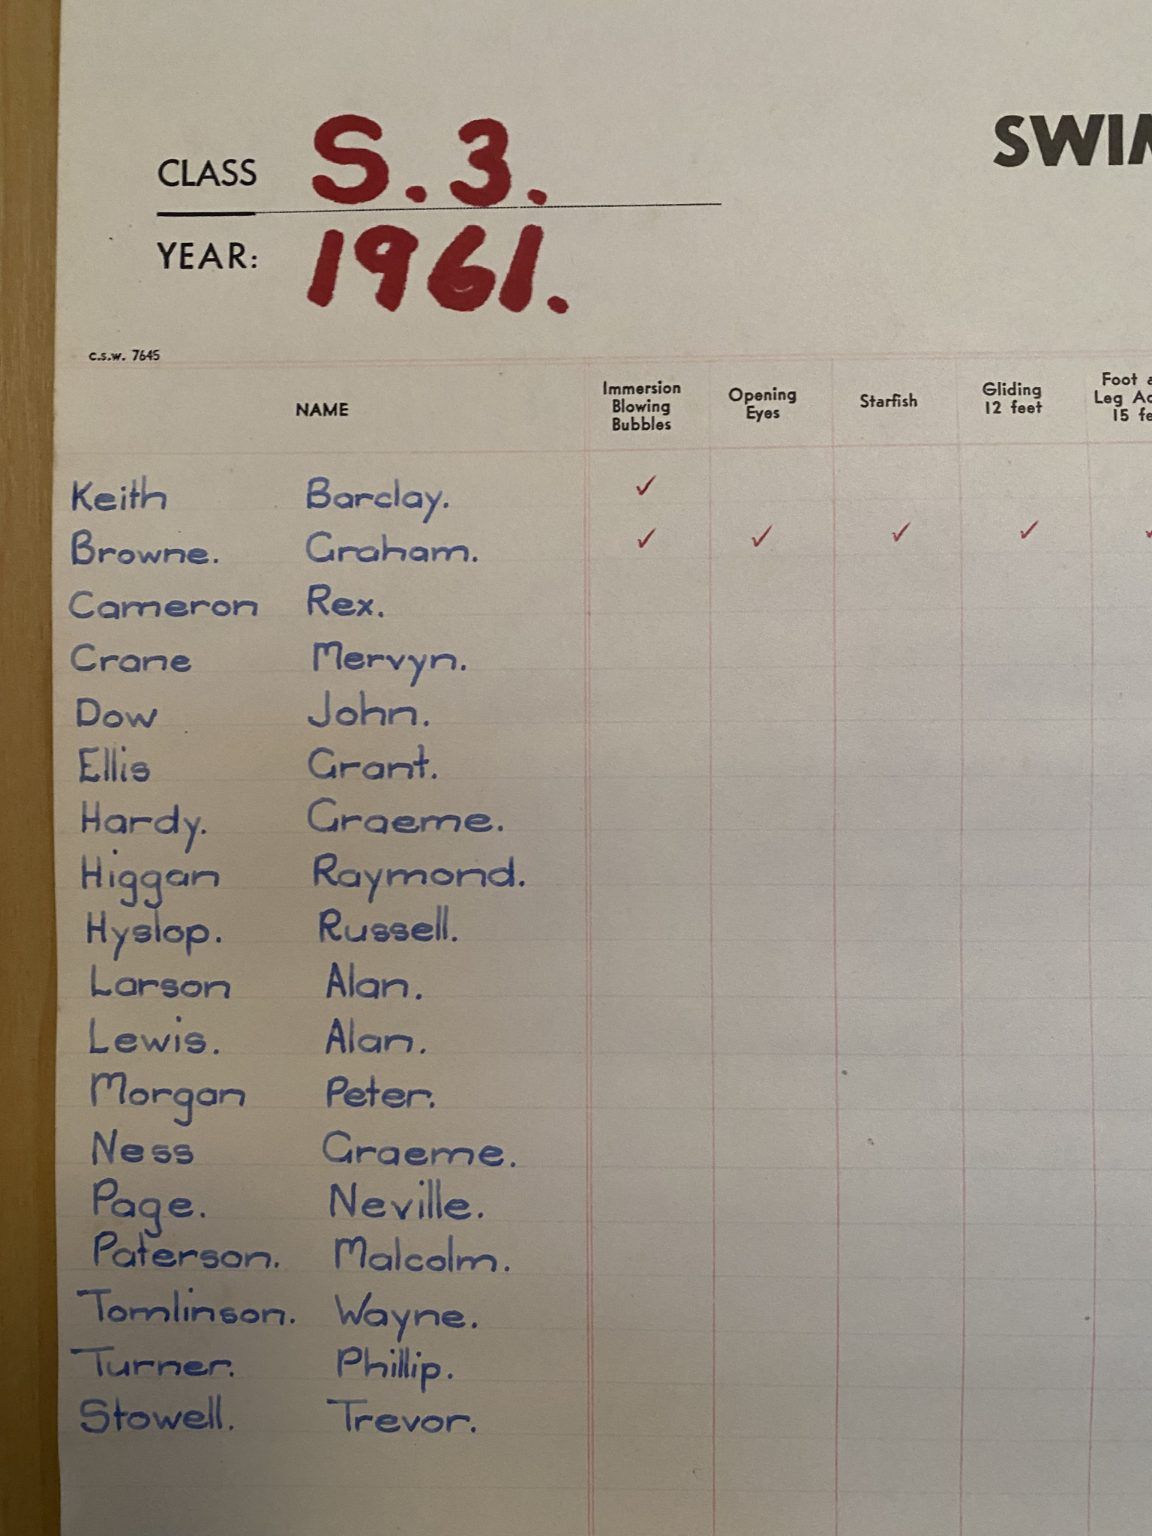 CLASS S.3.
SWIM
YEAR: 1961.
C.S.W. 7645
NAME
Immersion
Blowing
Bubbles
Opening
Eyes
Starfish
Gliding
12 feet
Foot
Leg
15
Keith Barclay. ✓
Browne. Graham. ✓ ✓ ✓ ✓ ✓
Cameron Rex.
Crane Mervyn.
Dow John.
Ellis Grant.
Hardy. Graeme.
Higgan Raymond.
Hyslop. Russell.
Larson Alan.
Lewis. Alan.
Morgan Peter.
Ness Graeme.
Page. Neville.
Paterson. Malcolm.
Tomlinson. Wayne.
Turner. Phillip.
Stowell. Trevor.